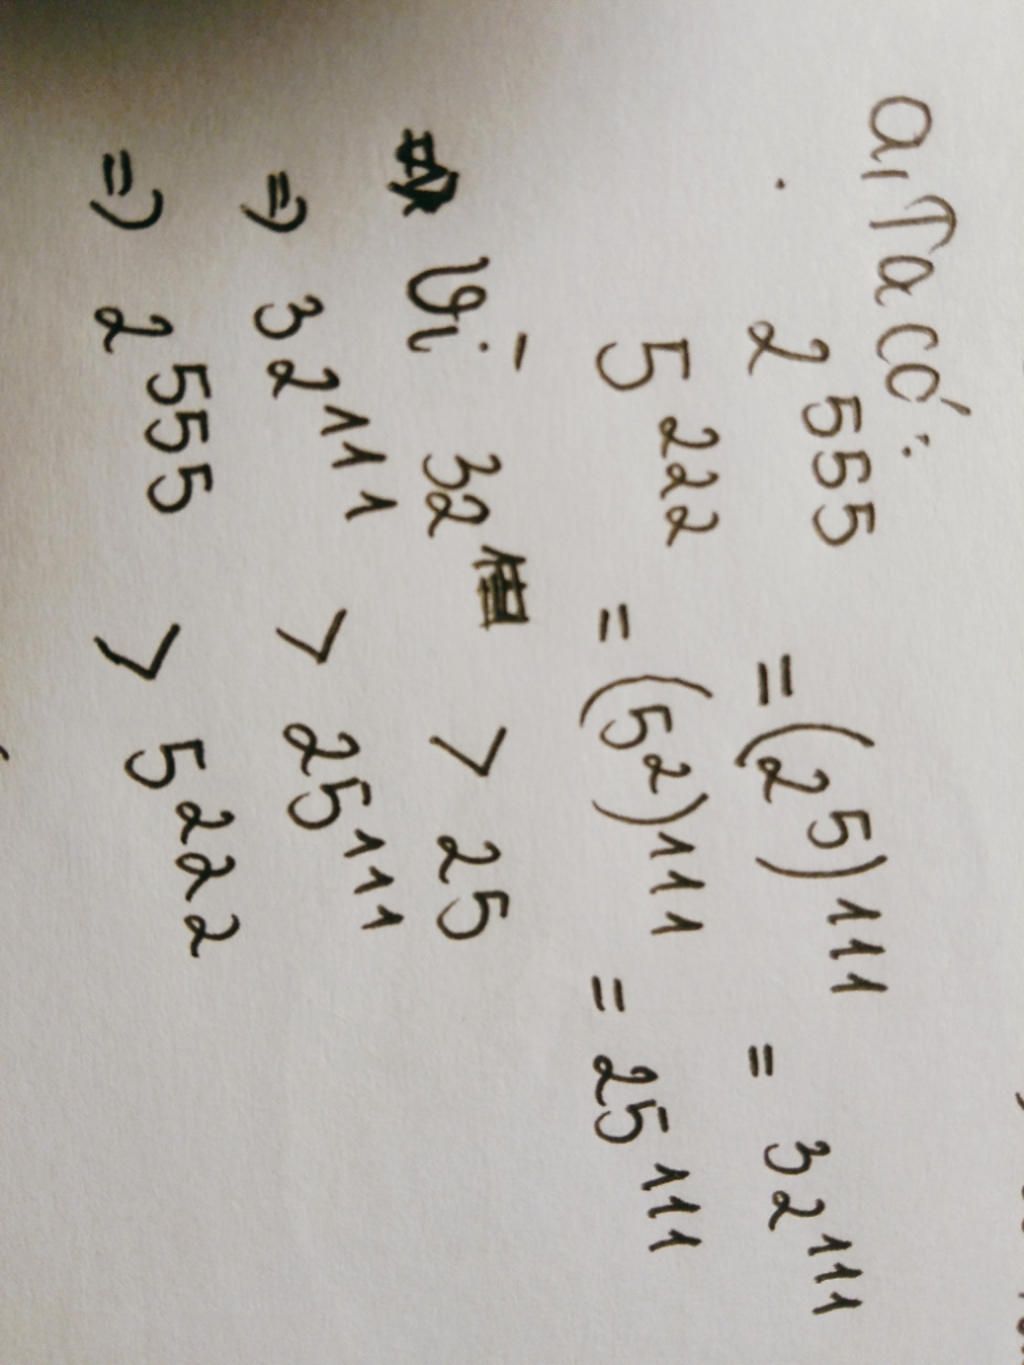 a, Ta có:
2^555 = (2^5)^111 = 32^111
5^222 = (5^2)^111 = 25^111
Vì 32 > 25
=> 32^111 > 25^111
=> 2^555 > 5^222